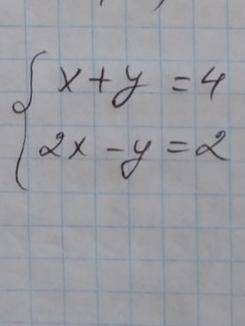 x + y = 4
2x - y = 2